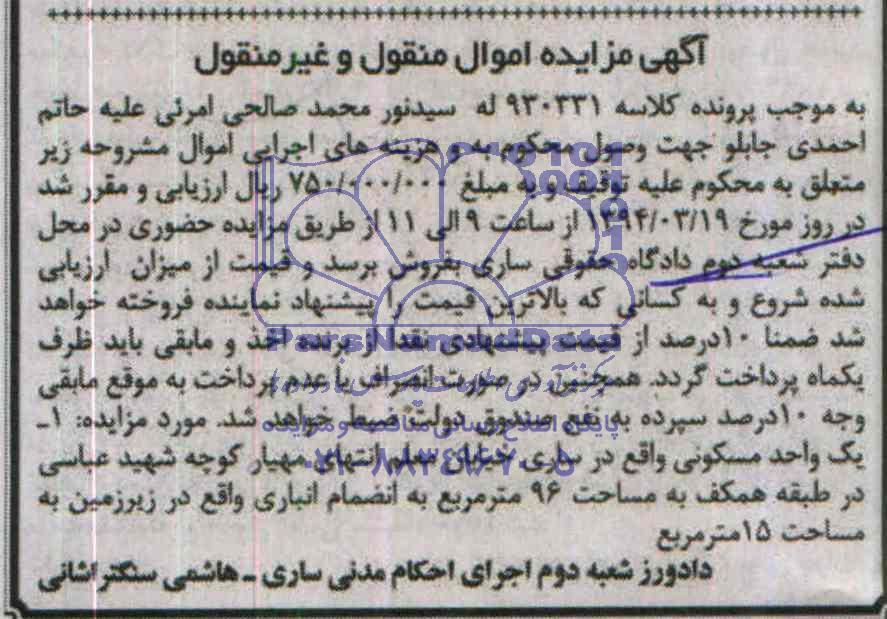 آگهی مزایده اموال منقول و غیرمنقول
به موجب پرونده کلاسه ۹۳۰۳۳۱ له سیدنور محمد صالحی امرئی علیه حاتم
احمدی جابلو جهت وصول محکوم به و هزینه های اجرایی اموال مشروحه زیر
متعلق به محکوم علیه توقیف و به مبلغ ۷۵۰/۰۰۰/۰۰۰ ریال ارزیابی و مقرر شد
در روز مورخ ۱۳۹۴/۰۳/۱۹ از ساعت ۹ الی ۱۱ از طریق مزایده حضوری در محل
دفتر شعبه دوم دادگاه حقوقی ساری بفروش برسد و قیمت از میزان ارزیابی
شده شروع و به کسانی که بالاترین قیمت را پیشنهاد نماینده فروخته خواهد
شد ضمنا ۱۰درصد از قیمت پیشنهادی نقدا از برنده اخذ و مابقی باید ظرف
یکماه پرداخت گردد. همچنین در صورت انصراف یا عدم پرداخت به موقع مابقی
وجه ۱۰درصد سپرده به نفع صندوق دولت ضبط خواهد شد. مورد مزایده: ۱-
یک واحد مسکونی واقع در ساری خیابان انتهای مهیار کوچه شهید عباسی
در طبقه همکف به مساحت ۹۶ مترمربع به انضمام انباری واقع در زیرزمین به
مساحت ۱۵مترمربع
دادورز شعبه دوم اجرای احکام مدنی ساری - هاشمی سنگتراشانی
ParsNamadData
پایگاه اطلاع رسانی مناقصه و مزایده
۰۲۱-۸۸۳۴۹۶۷۰-۵